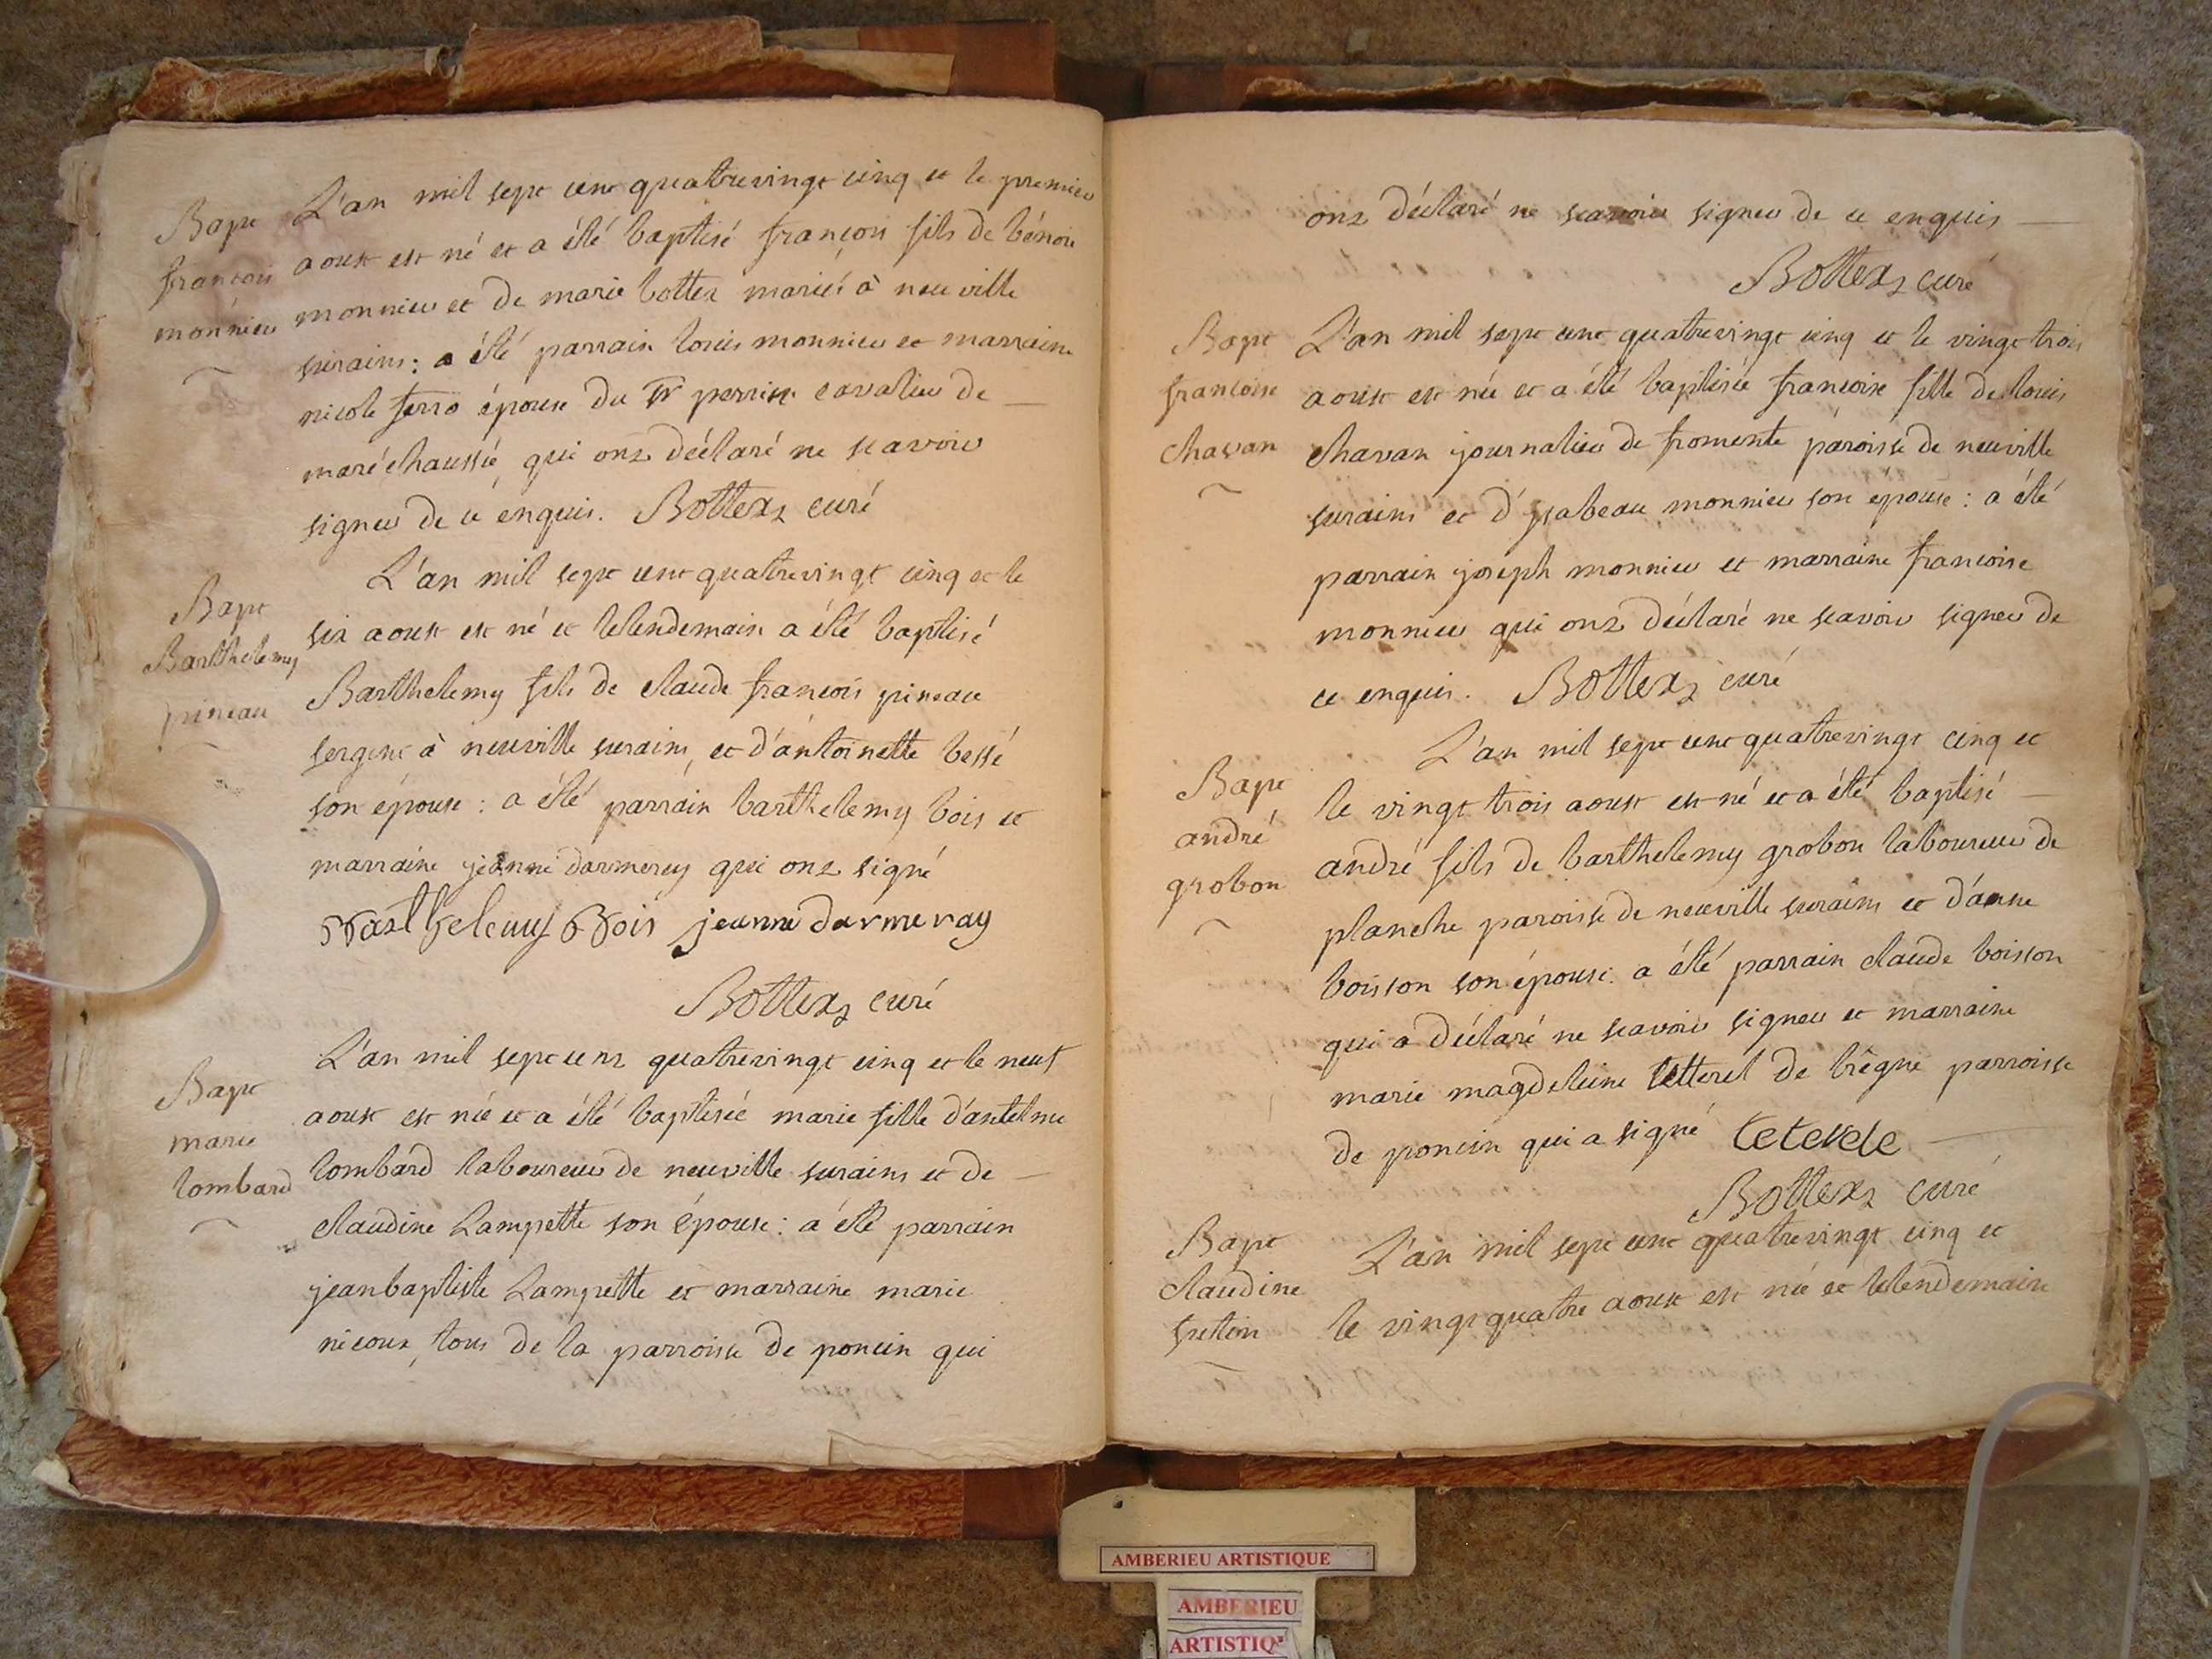 Bapt
françois
monnier
L'an mil sept cent quatrevingt cinq et le premier
aoust est né et a été baptisé françois fils de bénoit
monnier et de marie bottex mariés à neuville
surains: a été parrain louis monnier et marraine
nicole ferro épouse du Sr perrin cavalier de
maréchaussée, qui ont déclaré ne scavoir
signer de ce enquis. Bottex curé
Bapt
Barthelemy
pineau
L'an mil sept cent quatrevingt cinq et le
six aoust est né et lelendemain a été baptisé
Barthelemy fils de claude françois pineau
sergent à neuville surains, et d'antoinette bessé
son épouse: a été parrain barthelemy bois et
marraine jeanne darmerey qui ont signé
Barthelemy Bois jeanne darmeray
Bottex curé
Bapt
marie
lombard
L'an mil sept cent quatrevingt cinq et le neuf
aoust est née et a été baptisée marie fille d'antelme
lombard laboureur de neuville surains et de
claudine Lampette son épouse: a été parrain
jeanbaptiste Lampette et marraine marie
nicoux, tous de la parroisse de poncin qui
ont déclaré ne scavoir signer de ce enquis
Bottex curé
Bapt
francoise
chavan
L'an mil sept cent quatrevingt cinq et le vingt trois
aoust est née et a été baptisée francoise fille de louis
chavan journalier de fromente paroisse de neuville
surains et d'ysabeau monnier son épouse: a été
parrain joseph monnier et marraine francoise
monnier qui ont déclaré ne scavoir signer de
ce enquis. Bottex curé
Bapt
andré
grobon
L'an mil sept cent quatrevingt cinq et
le vingt trois aoust est né et a été baptisé
andré fils de barthelemy grobon laboureur de
planche paroisse de neuville surains et d'anne
boisson son épouse: a été parrain claude boisson
qui a déclaré ne scavoir signer et marraine
marie magdeleine tetterel de brêgne parroisse
de poncin qui a signé
Bottex curé
Bapt
claudine
L'an mil sept cent quatrevingt cinq et
le vingt quatre aoust est née et lelendemain
AMBERIEU ARTISTIQUE
AMBERIEU
ARTISTIQ